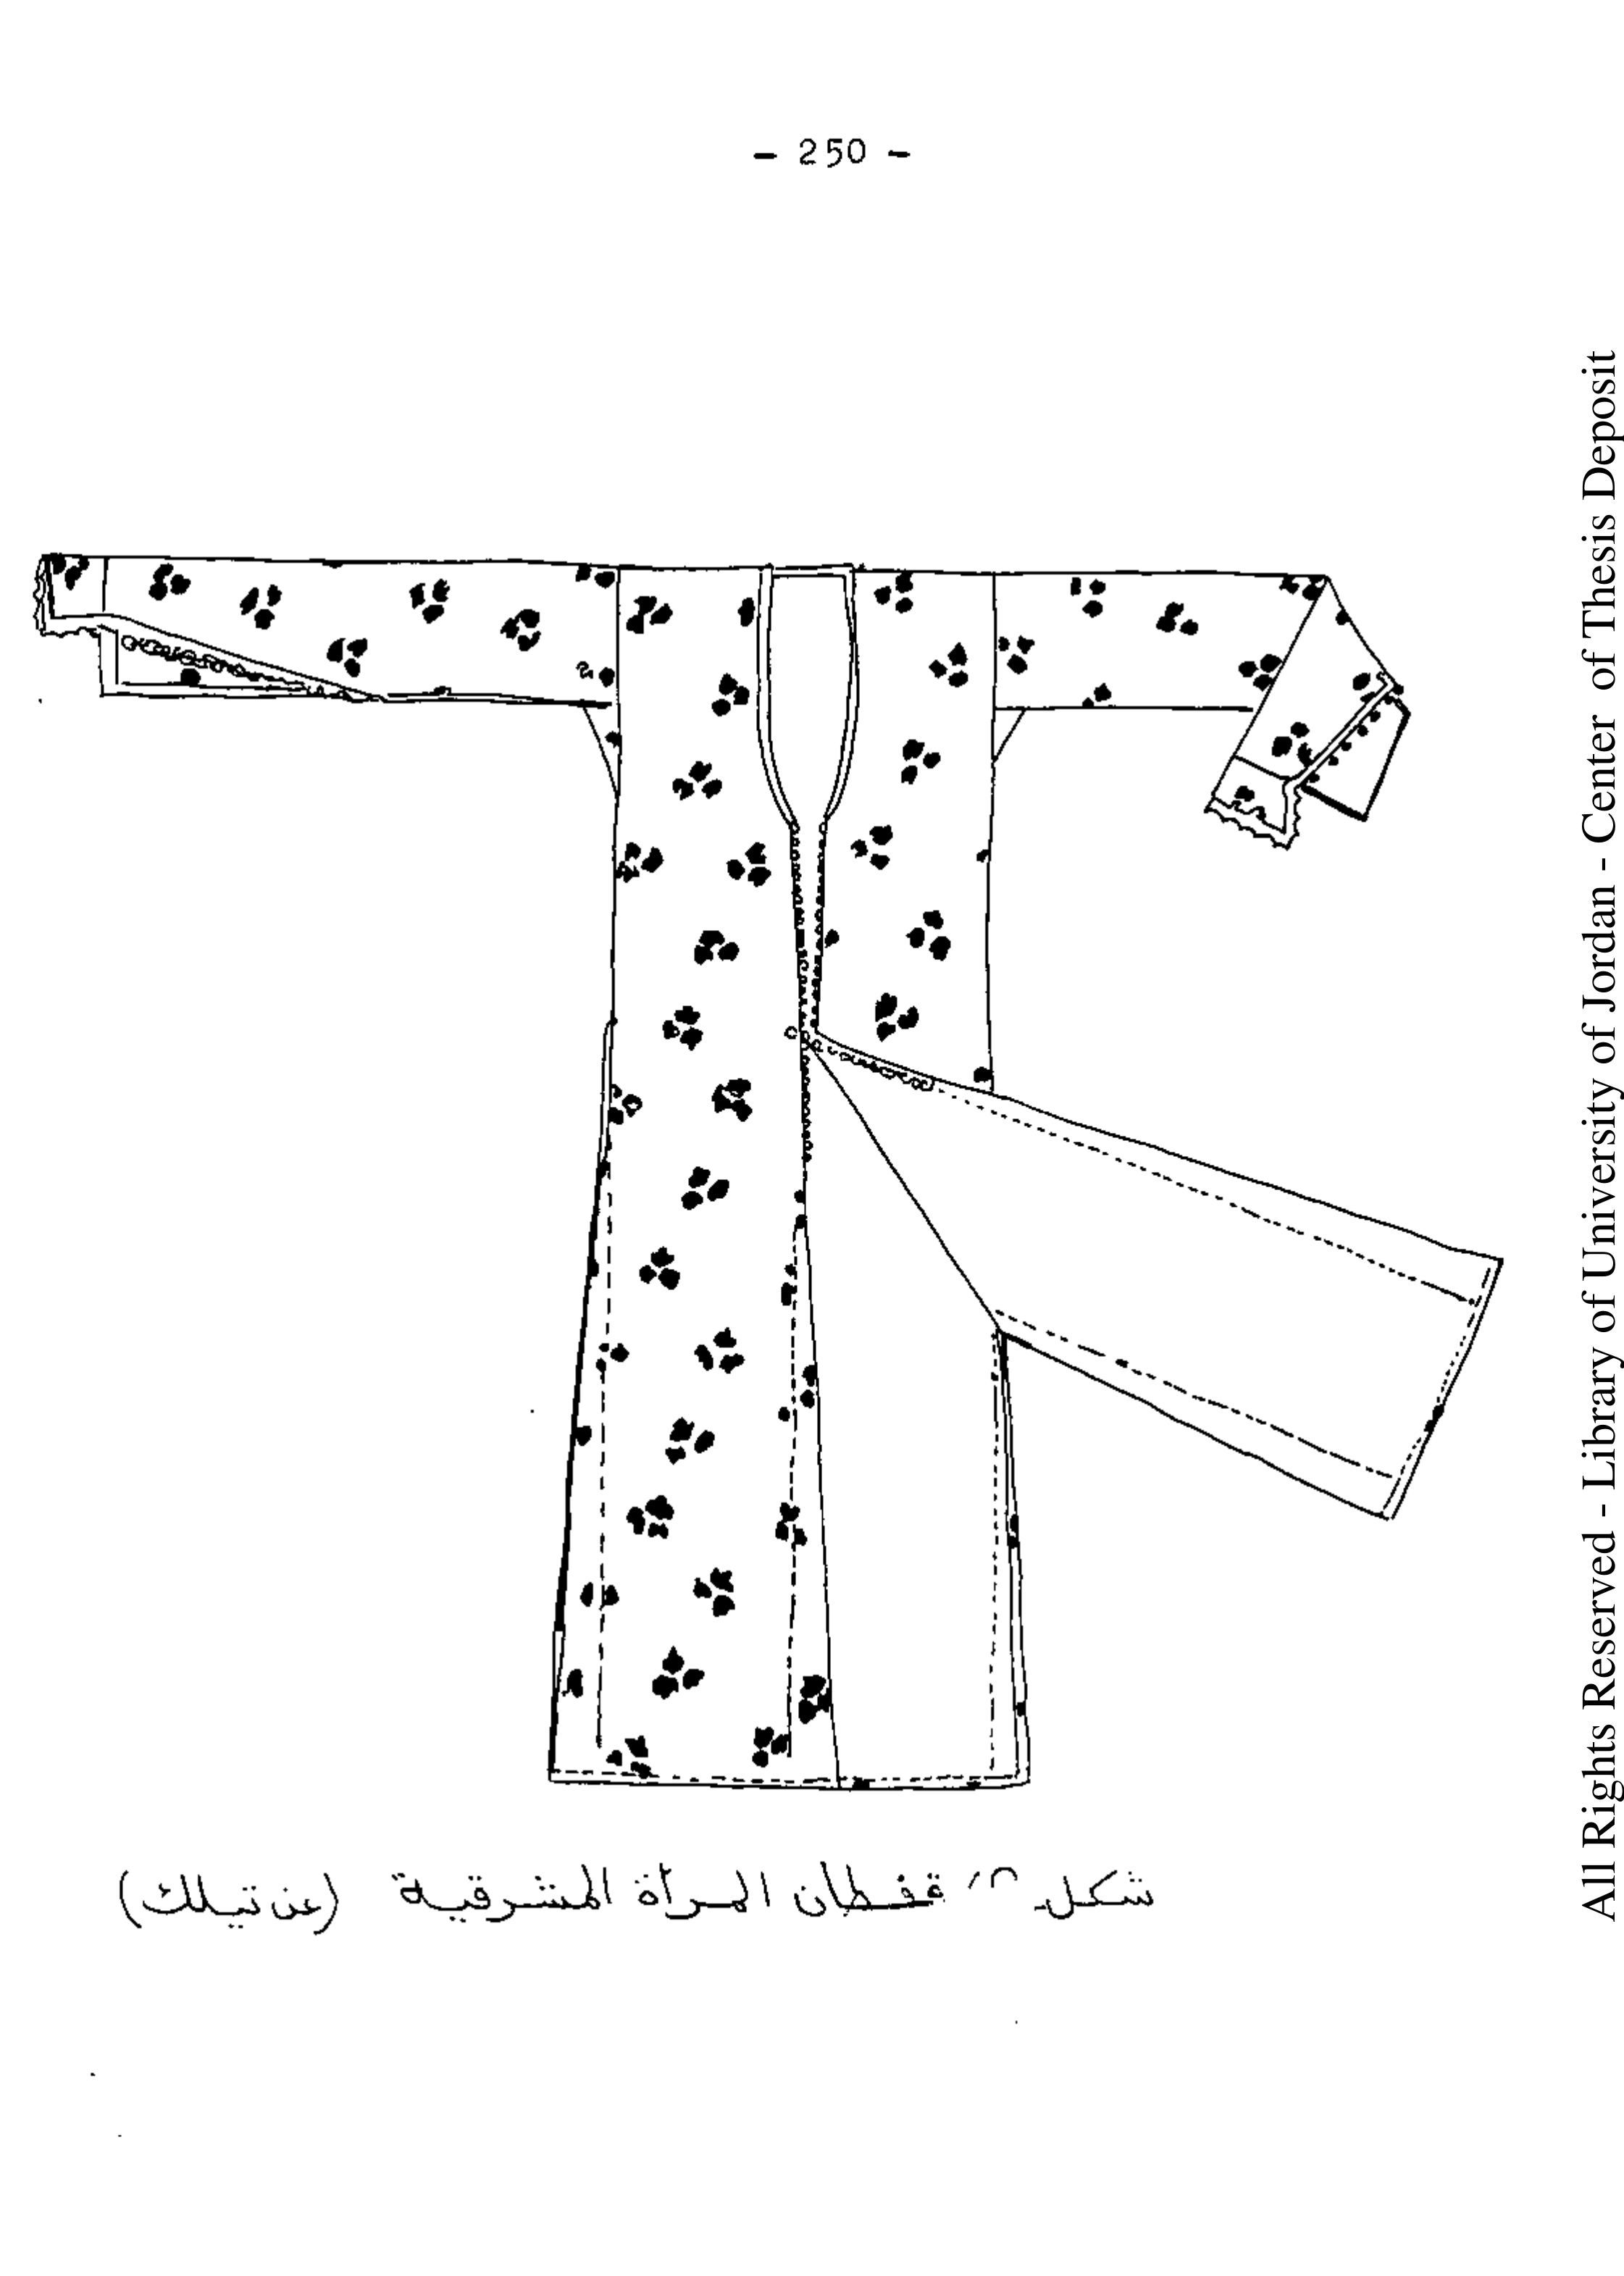 - 250 -
شكل قفطان المرأة المشرقية (عن تيلك)
All Rights Reserved - Library of University of Jordan - Center of Thesis Deposit